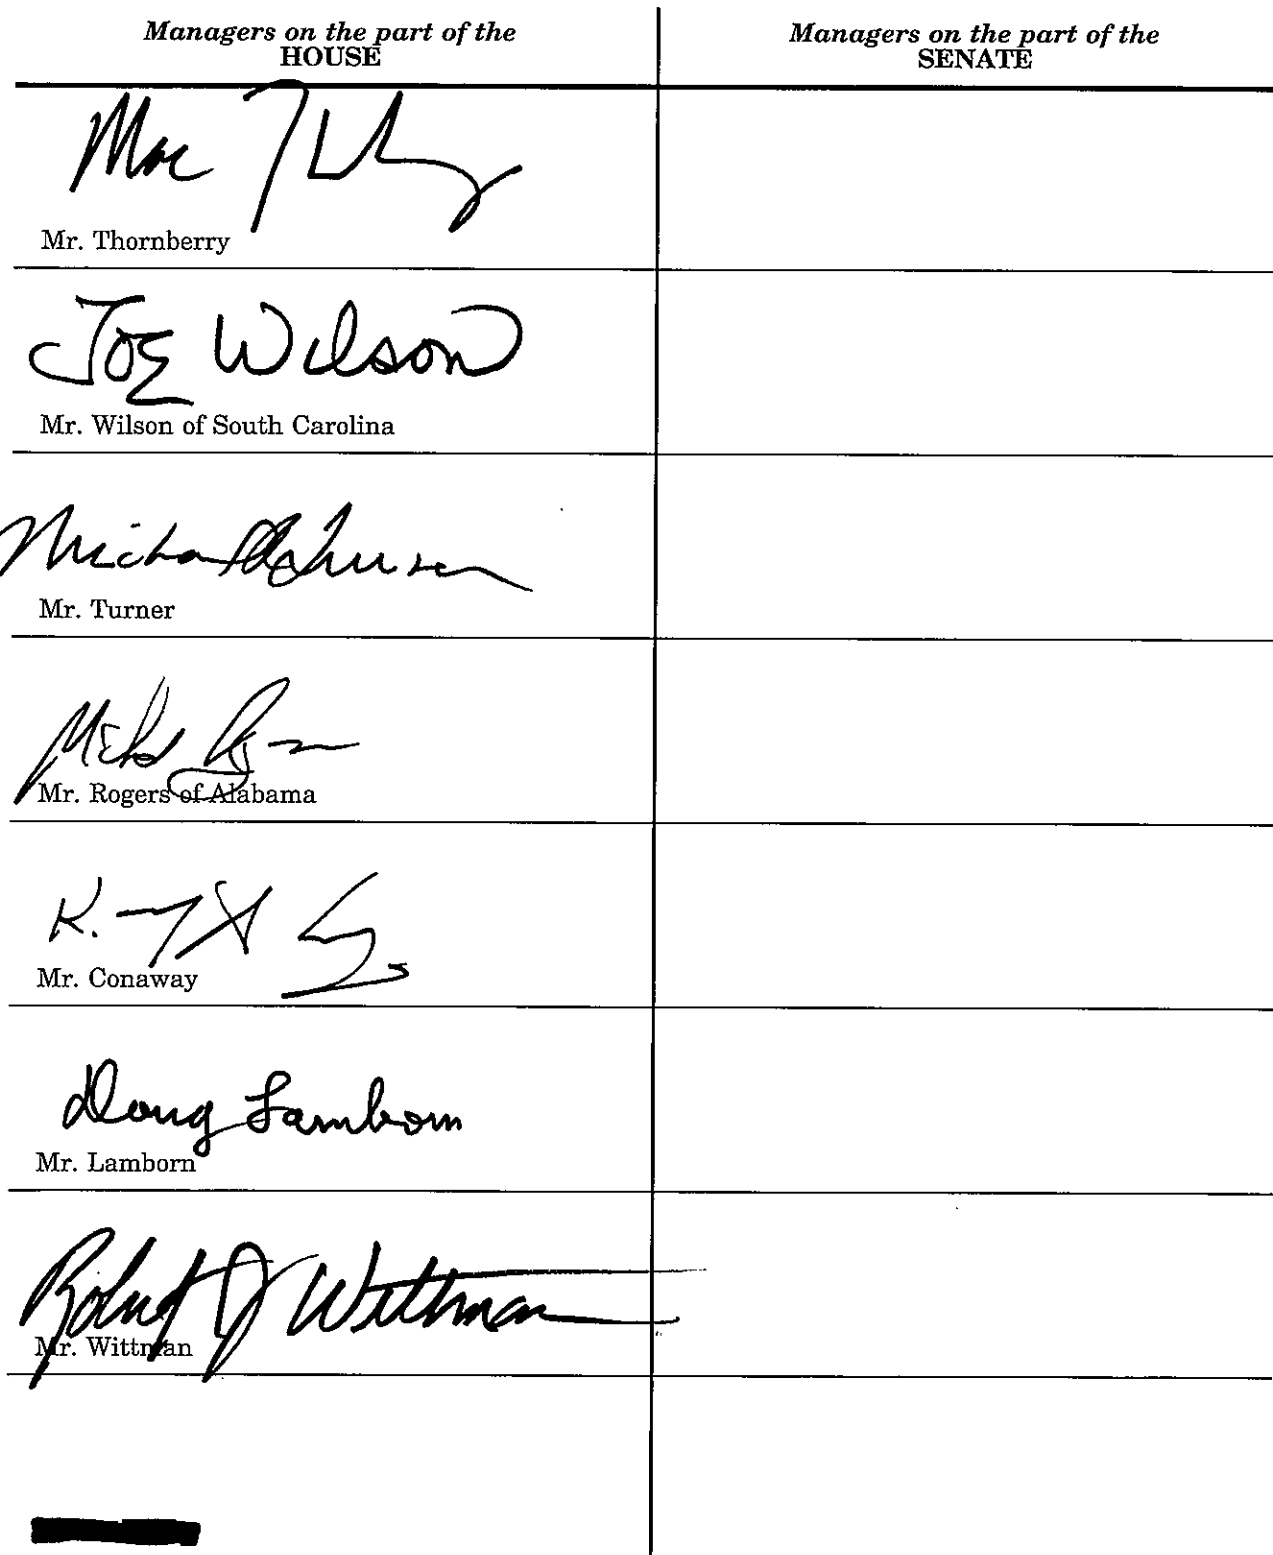 Managers on the part of the
HOUSE
Managers on the part of the
SENATE
Mac
Mr. Thornberry
Joe Wilson
Mr. Wilson of South Carolina
Michael Turner
Mr. Turner
Mike Rogers
Mr. Rogers of Alabama
K.
Mr. Conaway
Doug Lamborn
Mr. Lamborn
Robert J Wittman
Mr. Wittman